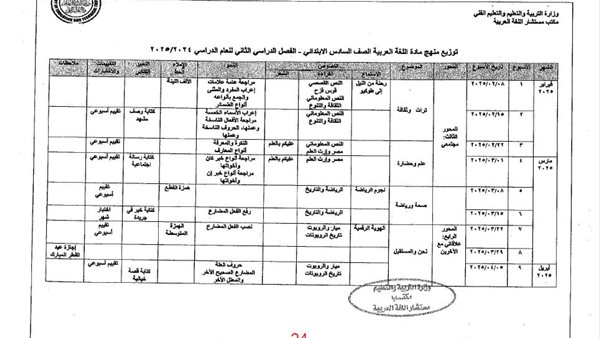 وزارة التربية والتعليم والتعليم الفني
مكتب مستشار اللغة العربية
توزيع منهج مادة اللغة العربية الصف السادس الابتدائي - الفصل الدراسي الثاني للعام الدراسي ٢٠٢٥/٢٠٢٤
الشهر الأسبوع تاريخ الأسبوع المحور الموضوع الاستماع النصوص القراءة الشعر النحو الإملاء الخط التعبير الكتابي التقييمات والاختبارات ملاحظات
فبراير ٢٠٢٥
١ ٢٠٢٥/٠٢/٠٨ المحور الثالث: مجتمعي تراث وثقافة رحلة من النيل إلى طوكيو النص القصصي قوس قزح النص المعلوماتي الثقافة والتنوع مراجعة عامة علامات إعراب المفرد والمثنى والجمع بأنواعه أنواع الضمائر الألف اللينة
٢ ٢٠٢٥/٠٢/١٥ النص المعلوماتي الثقافة والتنوع إعراب الأسماء الخمسة مراجعة الأفعال الناسخة وعملها، الحروف الناسخة وعملها كتابة وصف مشهد تقييم أسبوعي
٣ ٢٠٢٥/٠٢/٢٢ علم وحضارة النص المعلوماتي مصر وإرث العلم عليكم بالعلم النكرة والمعرفة أنواع المعارف
مارس ٢٠٢٥
٤ ٢٠٢٥/٠٣/٠١ النص المعلوماتي مصر وإرث العلم عليكم بالعلم مراجعة أنواع خبر كان وأخواتها مراجعة أنواع خبر إن وأخواتها كتابة رسالة اجتماعية تقييم أسبوعي
٥ ٢٠٢٥/٠٣/٠٨ المحور الرابع: علاقاتي مع الآخرين صحة ورياضة نجوم الرياضة الرياضة والتاريخ همزة القطع تقييم أسبوعي
٦ ٢٠٢٥/٠٣/١٥ الرياضة والتاريخ رفع الفعل المضارع كتابة خبر في جريدة اختبار شهر
٧ ٢٠٢٥/٠٣/٢٢ نحن والمستقبل الهوية الرقمية ميار والروبوت تاريخ الروبوتات نصب الفعل المضارع الهمزة المتوسطة تقييم أسبوعي
٨ ٢٠٢٥/٠٣/٢٩ إجازة عيد الفطر المبارك
أبريل ٢٠٢٥
٩ ٢٠٢٥/٠٤/٠٥ ميار والروبوت تاريخ الروبوتات حروف العلة المضارع الصحيح الآخر والمعتل الآخر كتابة قصة خيالية تقييم أسبوعي
وزارة التربية والتعليم
مكتب
مستشار اللغة العربية